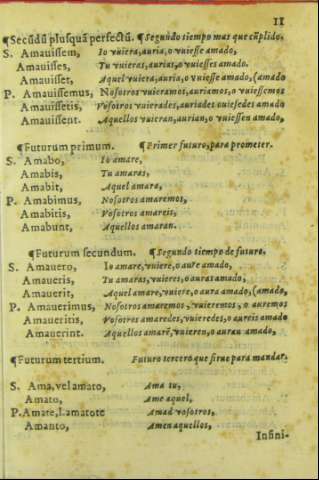 11
¶Secũdũ plusquã perfectũ. ¶Segundo tiempo mas que cũplido,
S. Amauissem, Io vuiera, auria, o vuiesse amado,
Amauisses, Tu vuieras, aurias, o vuiesses amado.
Amauisset, Aquel vuiera, auria, o vuiesse amado, (amado
P. Amauissemus, Nosotros vuieramos, auriamos, o vuiessemos
Amauissetis, Vosotros vuierades, auriades ouiesedes amado
Amauissent. Aquellos vuieran, aurian, o vuiessen amado,
¶Futurum primum. ¶Primer futuro, para prometer.
S. Amabo, Io amare,
Amabis, Tu amaras,
Amabit, Aquel amara,
P. Amabimus, Nosotros amaremos,
Amabitis, Vosotros amareis,
Amabunt, Aquellos amaran.
¶Futurum secundum. ¶Segundo tiempo de futuro.
S. Amauero, Io amare, vuiere, o aure amado,
Amaueris, Tu amaras, vuieres, o auras amado,
Amauerit, Aquel amare, vuiere, o aura amado, (amado,
P. Amauerimus, Nosotros amaremos, vuieremos, o auremos
Amaueritis, Vosotros amaredes, vuieredes, o aureis amado
Amauerint. Aquellos amarẽ, vuieren, o auran amado,
¶Futurum tertium. Futuro tercero que sirue para mandar.
S. Ama, vel amato, Ama tu,
Amato, Ame aquel,
P. Amate, l. amatote Amad vosotros,
Amanto, Amen aquellos,
Infini-